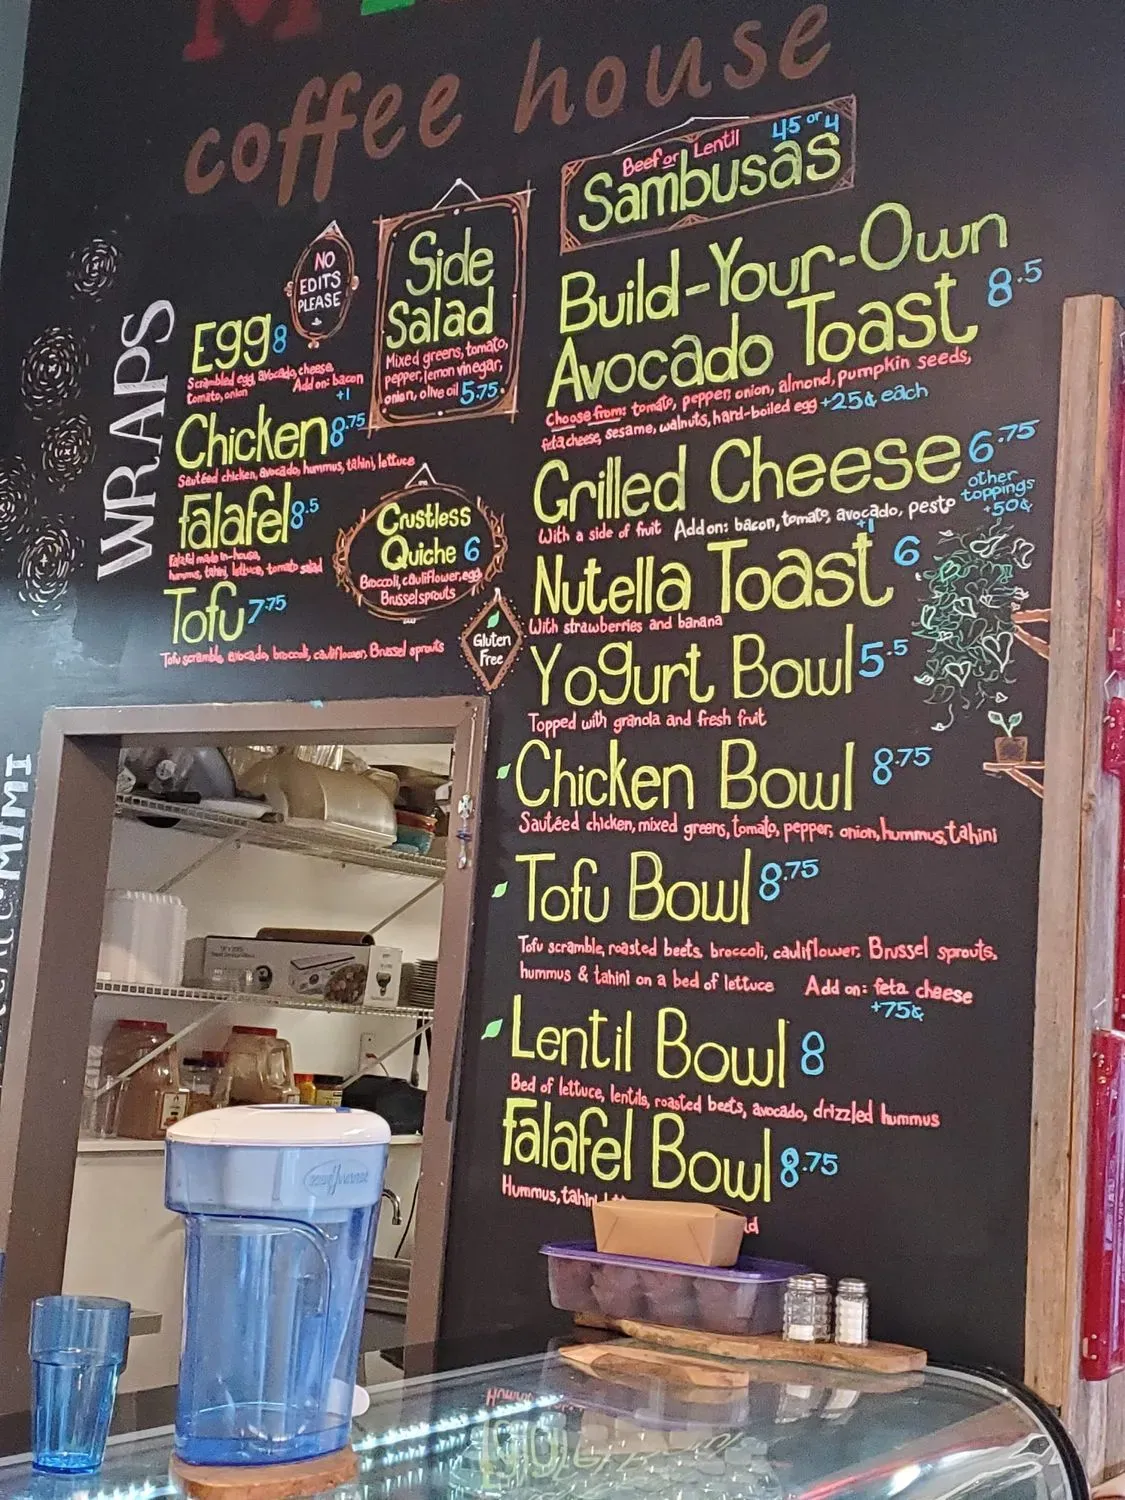 coffee house
Beef or Lentil 4.5 or 4
Sambusas
NO
EDITS
PLEASE
Side
Salad
Mixed greens, tomato,
pepper, lemon vinegar,
onion, olive oil 5.75
WRAPS
Egg 8
Scrambled egg, avocado, cheese,
tomato, onion Add on: bacon
+1
Chicken 8.75
Sautéed chicken, avocado, hummus, tahini, lettuce
Falafel 8.5
Falafel made in-house,
hummus, tahini, lettuce, tomato salad
Tofu 7.75
Tofu scramble, avocado, broccoli, cauliflower, Brussel sprouts
Crustless
Quiche 6
Broccoli, cauliflower, egg,
Brussel sprouts
Gluten
Free
Build-Your-Own
Avocado Toast 8.5
Choose from: tomato, pepper, onion, almond, pumpkin seeds,
feta cheese, sesame, walnuts, hard-boiled egg +25¢ each
Grilled Cheese 6.75
With a side of fruit Add on: bacon, tomato, avocado, pesto
+1
other
toppings
+50¢
Nutella Toast 6
With strawberries and banana
Yogurt Bowl 5.5
Topped with granola and fresh fruit
Chicken Bowl 8.75
Sautéed chicken, mixed greens, tomato, pepper, onion, hummus, tahini
Tofu Bowl 8.75
Tofu scramble, roasted beets, broccoli, cauliflower, Brussel sprouts,
hummus & tahini on a bed of lettuce Add on: feta cheese
+75¢
Lentil Bowl 8
Bed of lettuce, lentils, roasted beets, avocado, drizzled hummus
Falafel Bowl 8.75
Hummus, tahini
MIMI